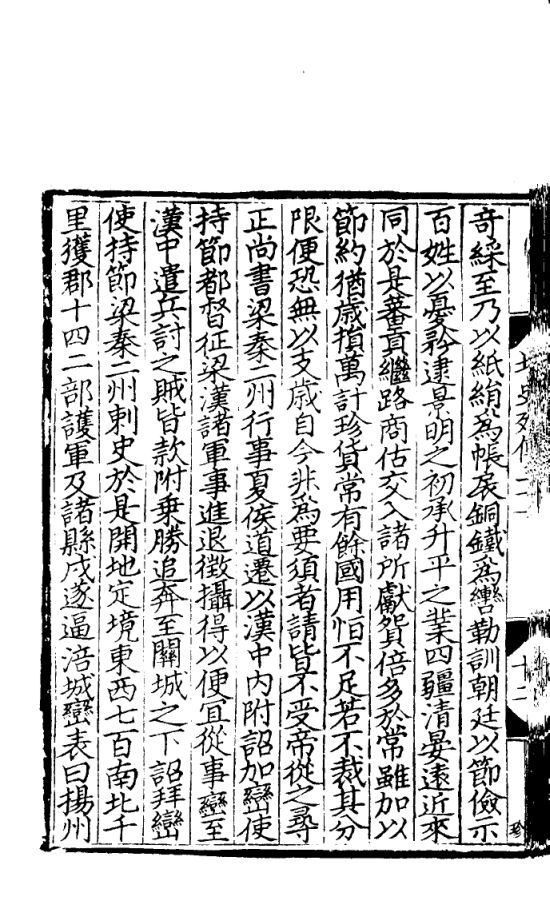 奇綵至乃以紙絹爲帳扆銅鐵爲轡勒訓朝廷以節儉示
百姓以憂矜逮景明之初承升平之業四疆清晏遠近來
同於是蕃貢繼路商估交入諸所獻貿倍多於常雖加以
節約猶歲損萬計珍貨常有餘國用恒不足若不裁其分
限便恐無以支歲自今非爲要須者請皆不受帝從之尋
正尚書梁秦二州行事夏侯道遷以漢中內附詔加巒使
持節都督征梁漢諸軍事進退徵攝得以便宜從事巒至
漢中遣兵討之賊皆款附乗勝追奔至關城之下詔拜巒
使持節梁秦二州刺史於是開地定境東西七百南北千
里獲郡十四二部護軍及諸縣戍遂逼涪城巒表曰揚州
十二
珍